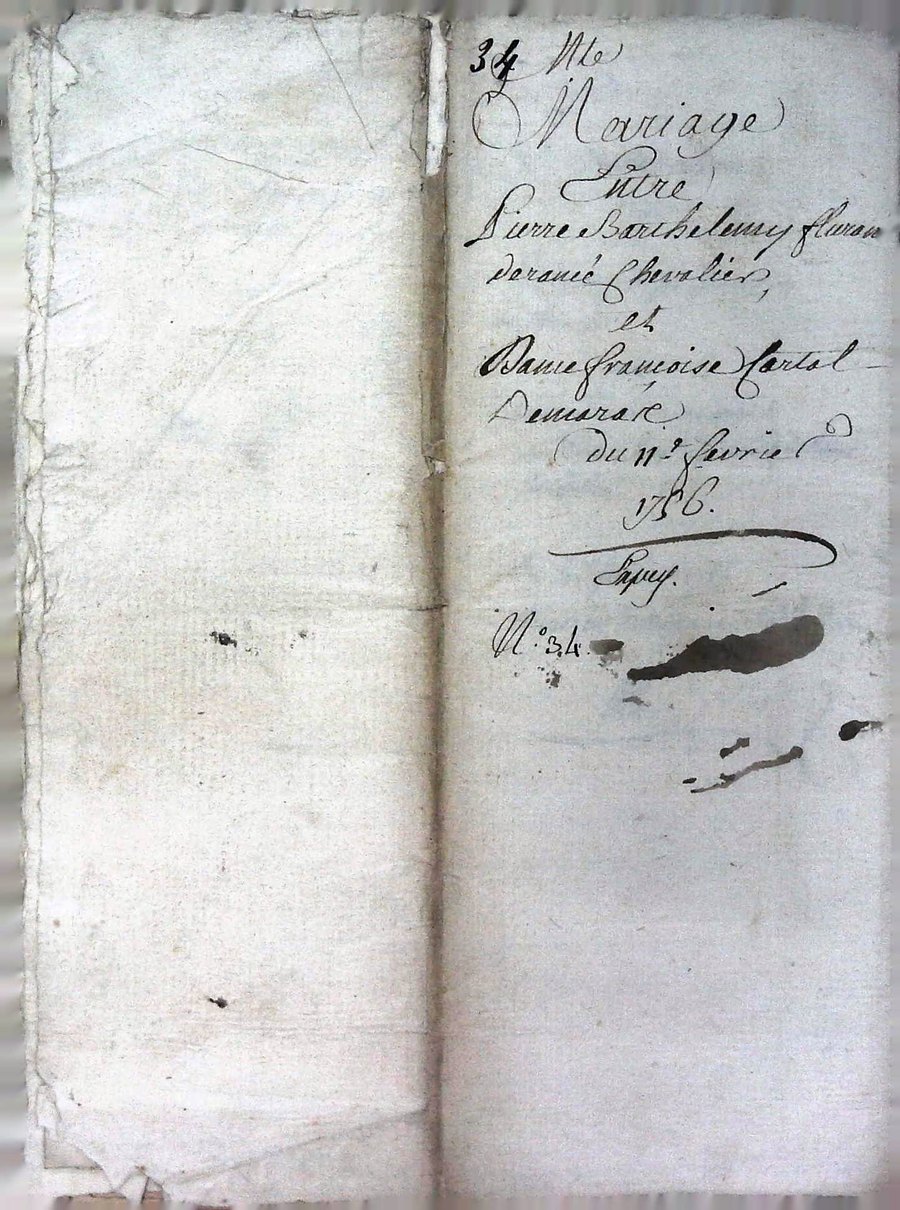 34 Nle
Mariage
Entre
Pierre Barthelemy fluran
deranié Chevalier,
et
Dame françoise Cartal
Demorare
du 11e fevrier
1756.
N.o 34